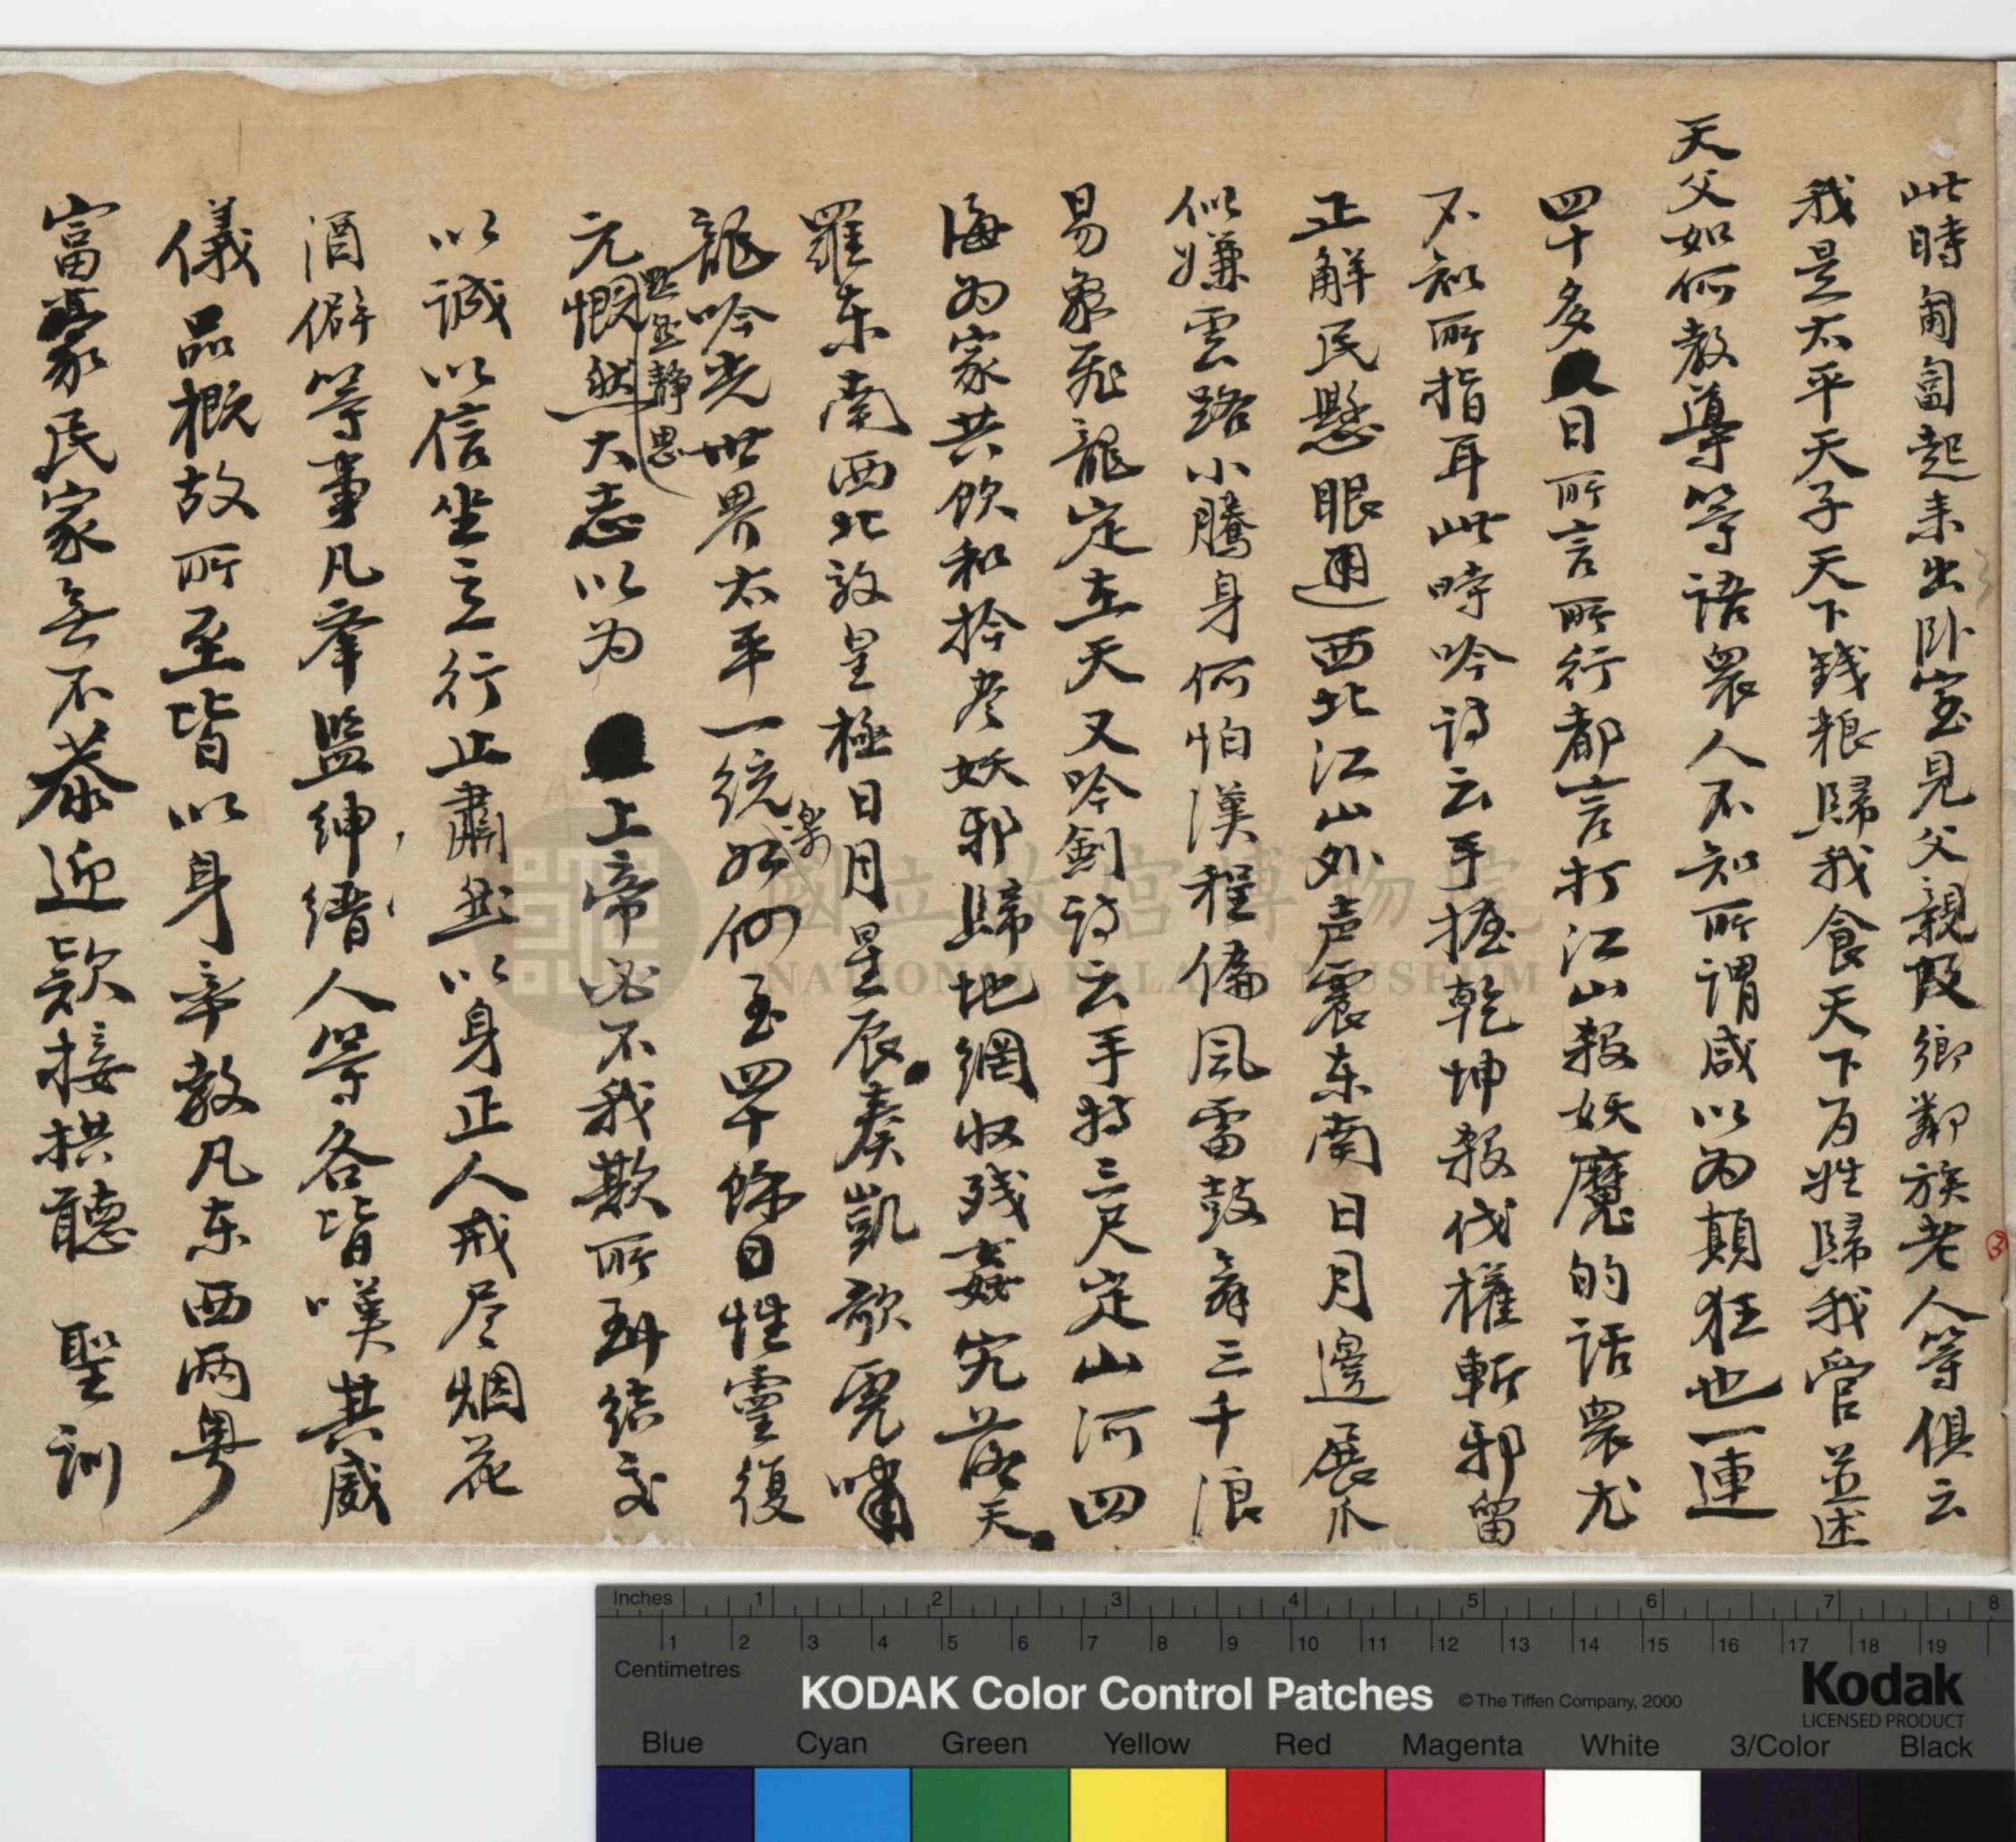 此時匍匐起来出卧室見父親叚鄉鄰族老人等俱云
我是太平天子天下錢粮歸我食天下百姓歸我管並述
天父如何教導等語眾人不知所謂咸以为顛狂也一連
四十多日所言所行都言打江山殺妖魔的话眾尤
不知所指耳此時吟詩云手握乾坤殺伐權斬邪留
正解民懸眼通西北江山外声震东南日月邊展爪
似嫌雲路小騰身何怕漢程偏風雷鼓舞三千浪
易象飛龍定在天又吟劍詩云手持三尺定山河四
海为家共飲和擒尽妖邪歸地網收残姦宄落天
羅东南西北敦皇極日月星辰奏凱歌虎嘯
龍吟光世界太平一統樂如何至四十餘日性靈復
元慨然大志以为上帝必不我欺所到结交
默坐静思
以誠以信坐立行止肅然以身正人戒尽烟花
酒僻等事凡举监绅缙人等各皆嘆其威
儀品概故所至皆以身率教凡东西两粤
富豪民家無不恭迎款接拱聽 聖训
3
國立故宮博物院
NATIONAL PALACE MUSEUM
Inches 1 2 3 4 5 6 7 8
Centimetres 1 2 3 4 5 6 7 8 9 10 11 12 13 14 15 16 17 18 19
KODAK Color Control Patches © The Tiffen Company, 2000
Kodak
LICENSED PRODUCT
Blue Cyan Green Yellow Red Magenta White 3/Color Black